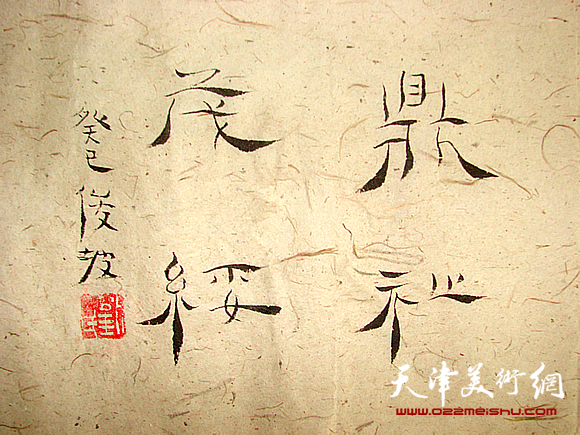 鼎祉
茂綏
癸巳俊坡
天津美術網
www.022meishu.com